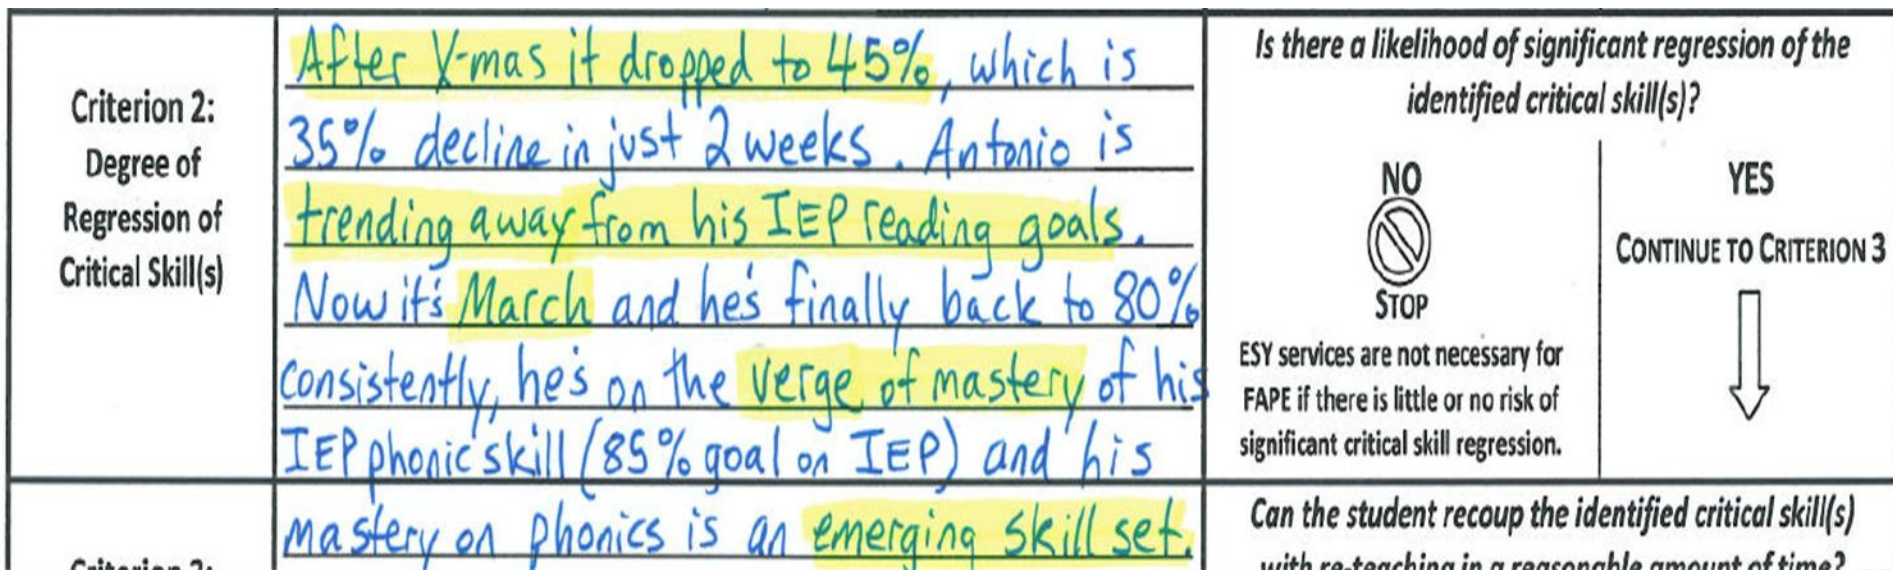 Criterion 2:
Degree of
Regression of
Critical Skill(s)
After X-mas it dropped to 45%, which is
35% decline in just 2 weeks. Antonio is
trending away from his IEP reading goals.
Now it's March and he's finally back to 80%
consistently, he's on the verge of mastery of his
IEP phonic skill (85% goal on IEP) and his
Is there a likelihood of significant regression of the
identified critical skill(s)?
NO
STOP
ESY services are not necessary for
FAPE if there is little or no risk of
significant critical skill regression.
YES
CONTINUE TO CRITERION 3
Criterion 3:
mastery on phonics is an emerging skill set.
Can the student recoup the identified critical skill(s)
with re-teaching in a reasonable amount of time?